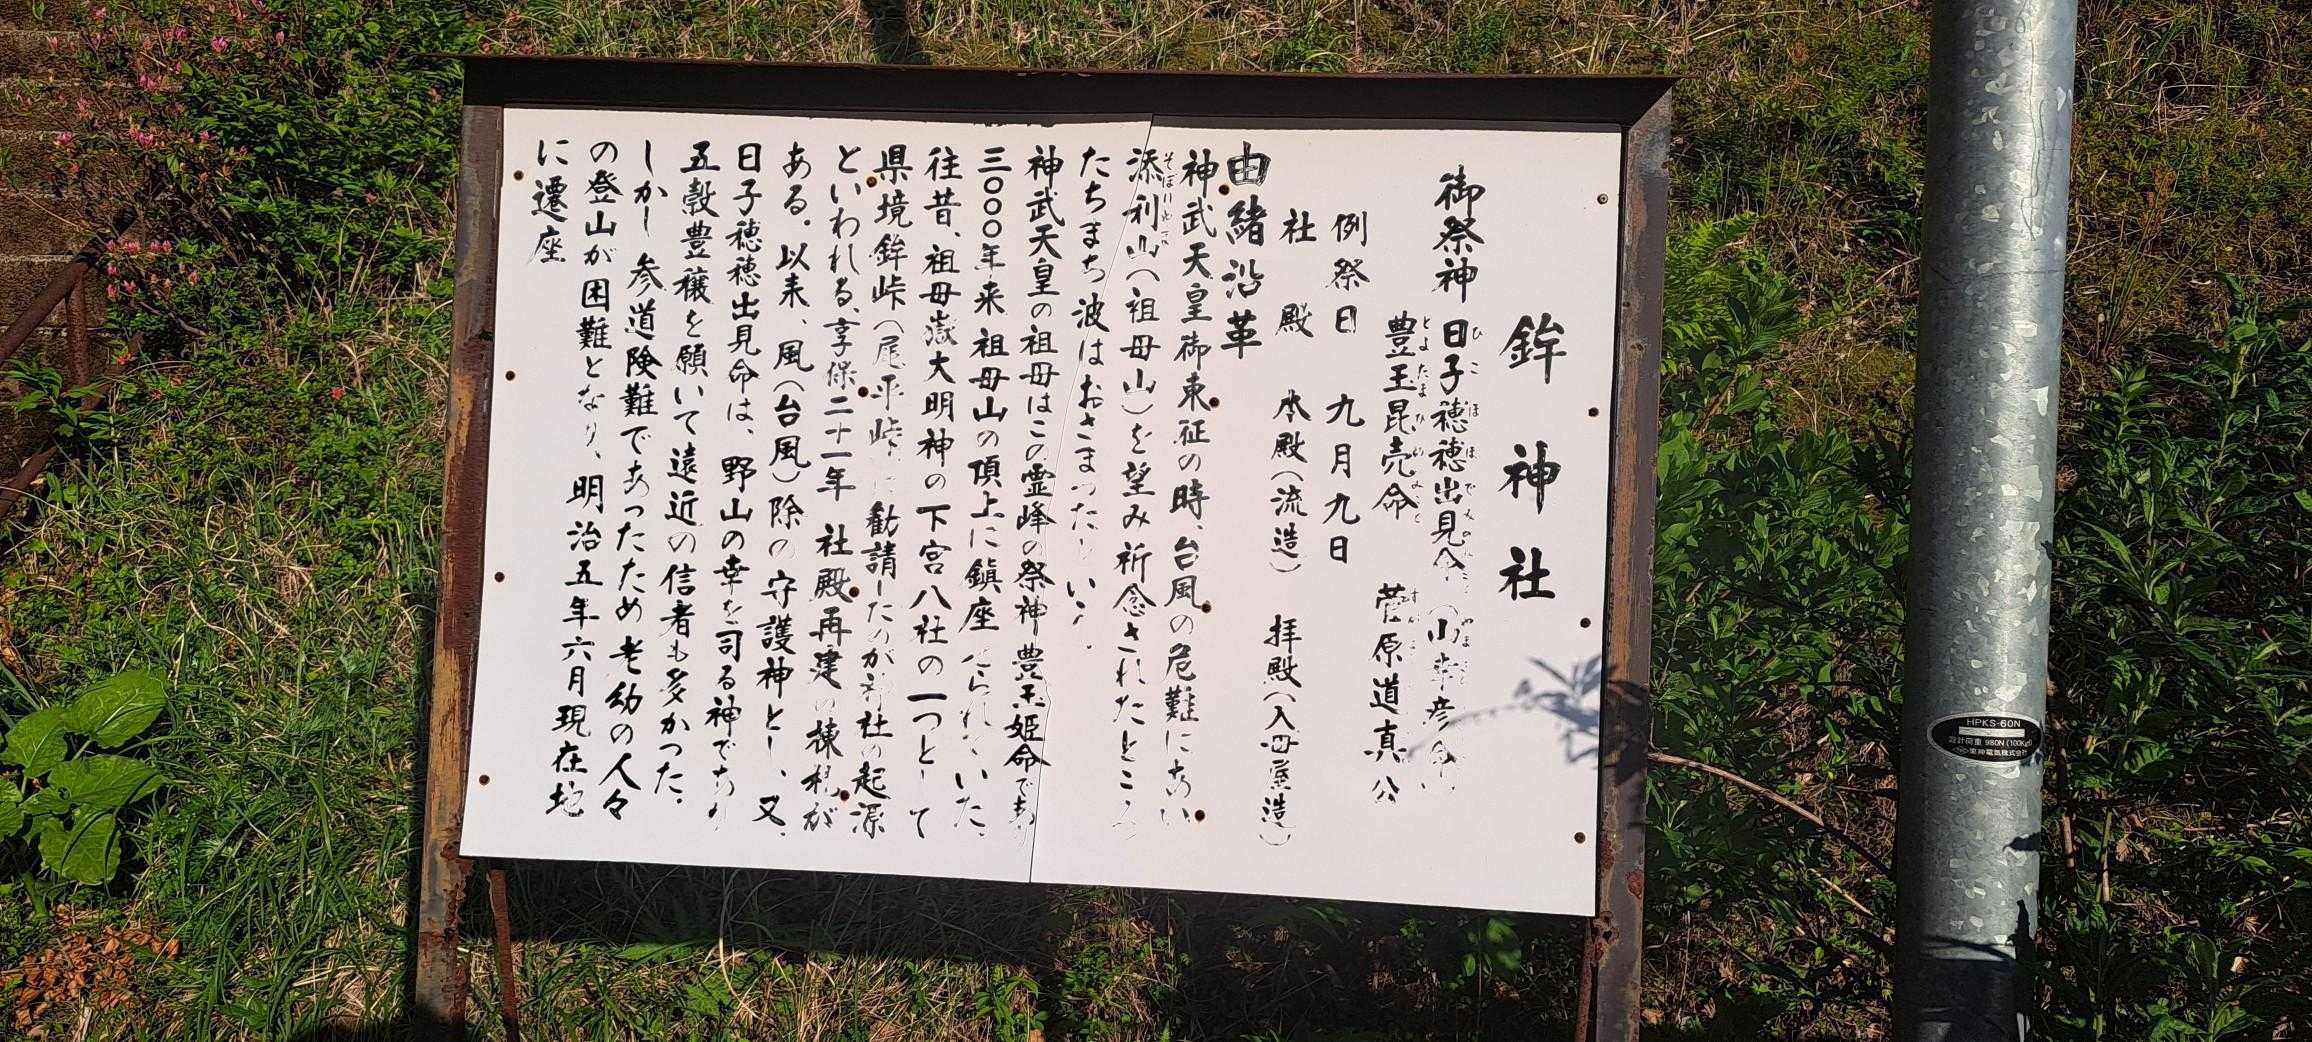 鉾神社
御祭神 日子穂穂出見命(山幸彦命)
豊玉昆売命 菅原道真公
例祭日 九月九日
社殿 本殿(流造) 拝殿(入母屋造)
由緒沿革
神武天皇御東征の時、台風の危難にあい
添利山(祖母山)を望み祈念されたところ
たちまち波はおさまったという.
神武天皇の祖母はこの霊峰の祭神豊玉姫命であり
三〇〇〇年来祖母山の頂上に鎮座せられていた.
往昔、祖母嶽大明神の下宮八社の一つとして
県境鉾峠(尾平峠)に勧請したのが神社の起源
といわれる、享保二十一年 社殿再建の棟札が
ある。以来、風(台風)除の守護神とし、又、
日子穂穂出見命は、野山の幸を司る神であり
五穀豊穣を願いて遠近の信者も多かった.
しかし参道険難であったため老幼の人々
の登山が困難となり、明治五年六月現在地
に遷座
HPKS-60N
設計荷重 980N(100Kgf)
東神電気株式会社